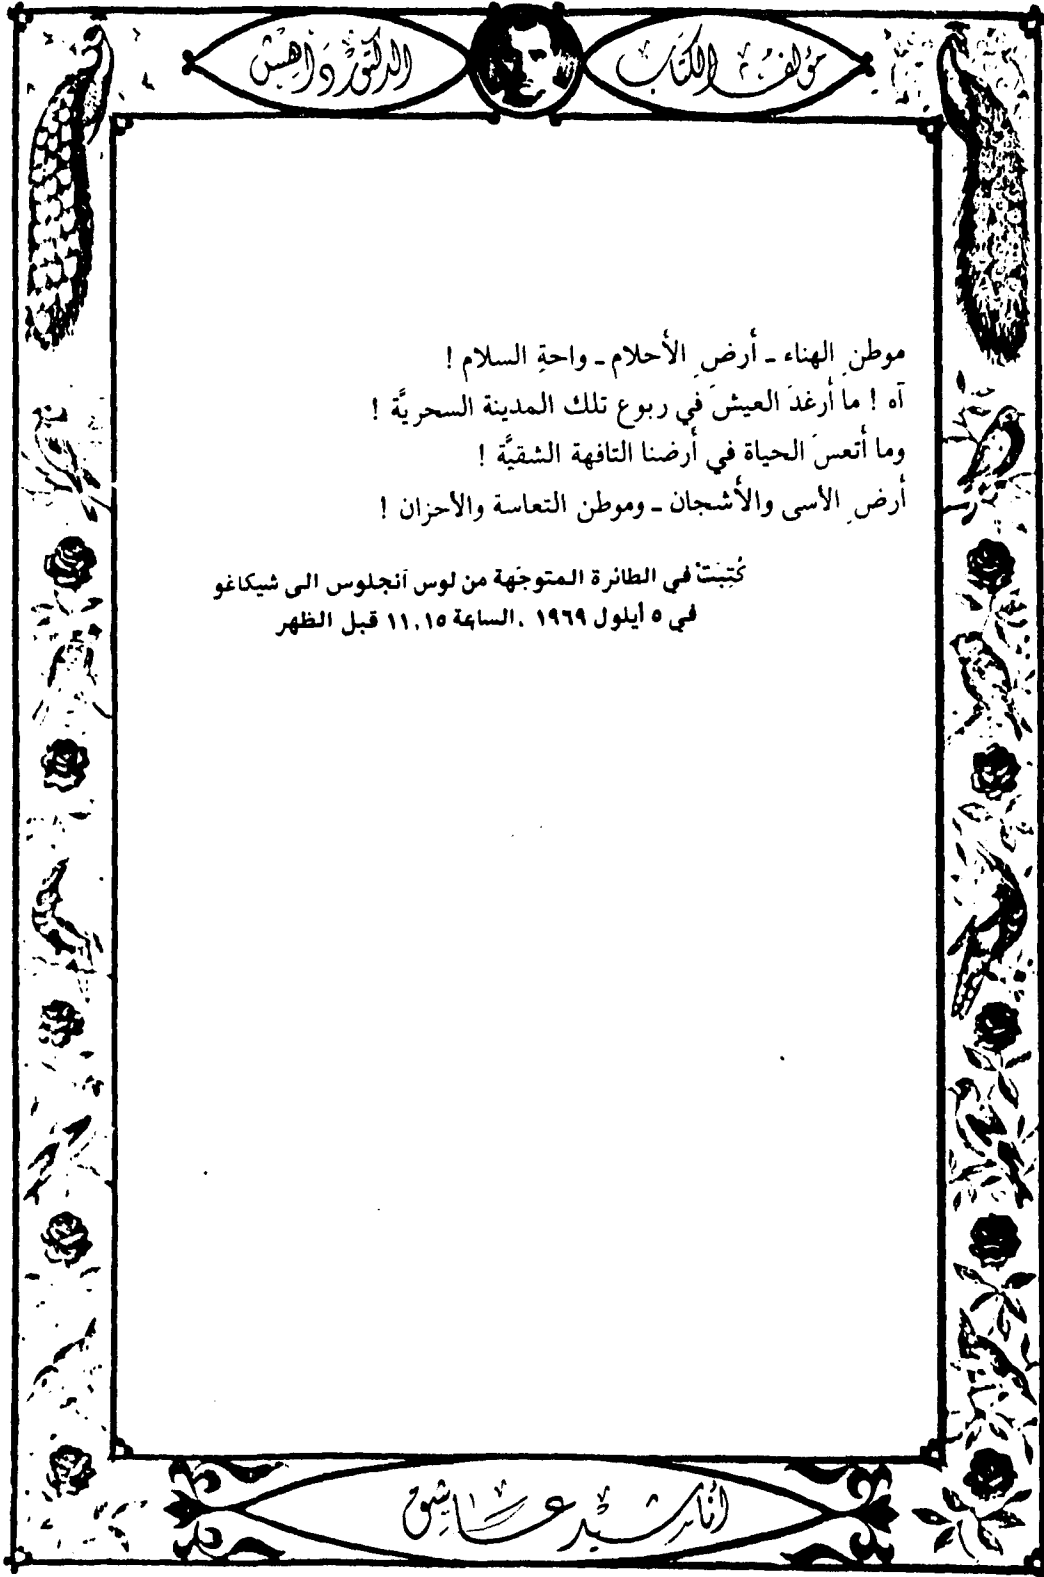 مؤلف الكتاب الدكتور داهش
موطنِ الهناء ـ أرضِ الأحلام ـ واحةِ السلام !
آه ! ما أرغدَ العيشَ في ربوع تلك المدينة السحريَّة !
وما أتعسَ الحياة في أرضنا التافهة الشقيَّة !
أرضِ الأسى والأشجان ـ وموطن التعاسة والأحزان !
كُتِبَتْ في الطائرة المتوجّهة من لوس آنجلوس الى شيكاغو
في ٥ أيلول ١٩٦٩ ، الساعة ١١،١٥ قبل الظهر
أناشيد عاشق